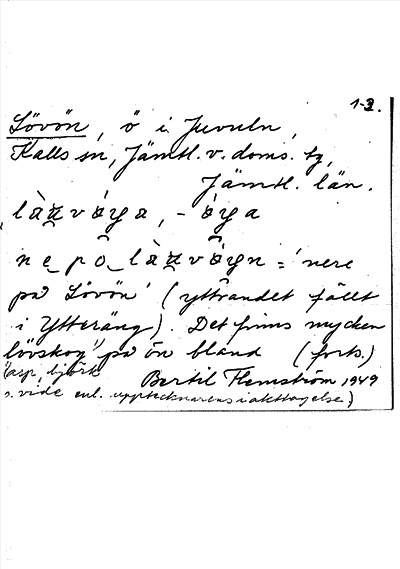 1-3.
Lövön, ö i Juvuln,
Kalls sn, Jämtl. v. doms. tg,
Jämtl. län.
làu̯vǿya, -ǿya
ne pô làu̯vǿyn = 'nere
på Lövön' (yttrandet fällt
i Ytteräng). Det finns mycken
lövskog på ön bland (forts.)
(asp, björk Bertil Flemström 1949
o. vide enl. upptecknarens iakttagelse)